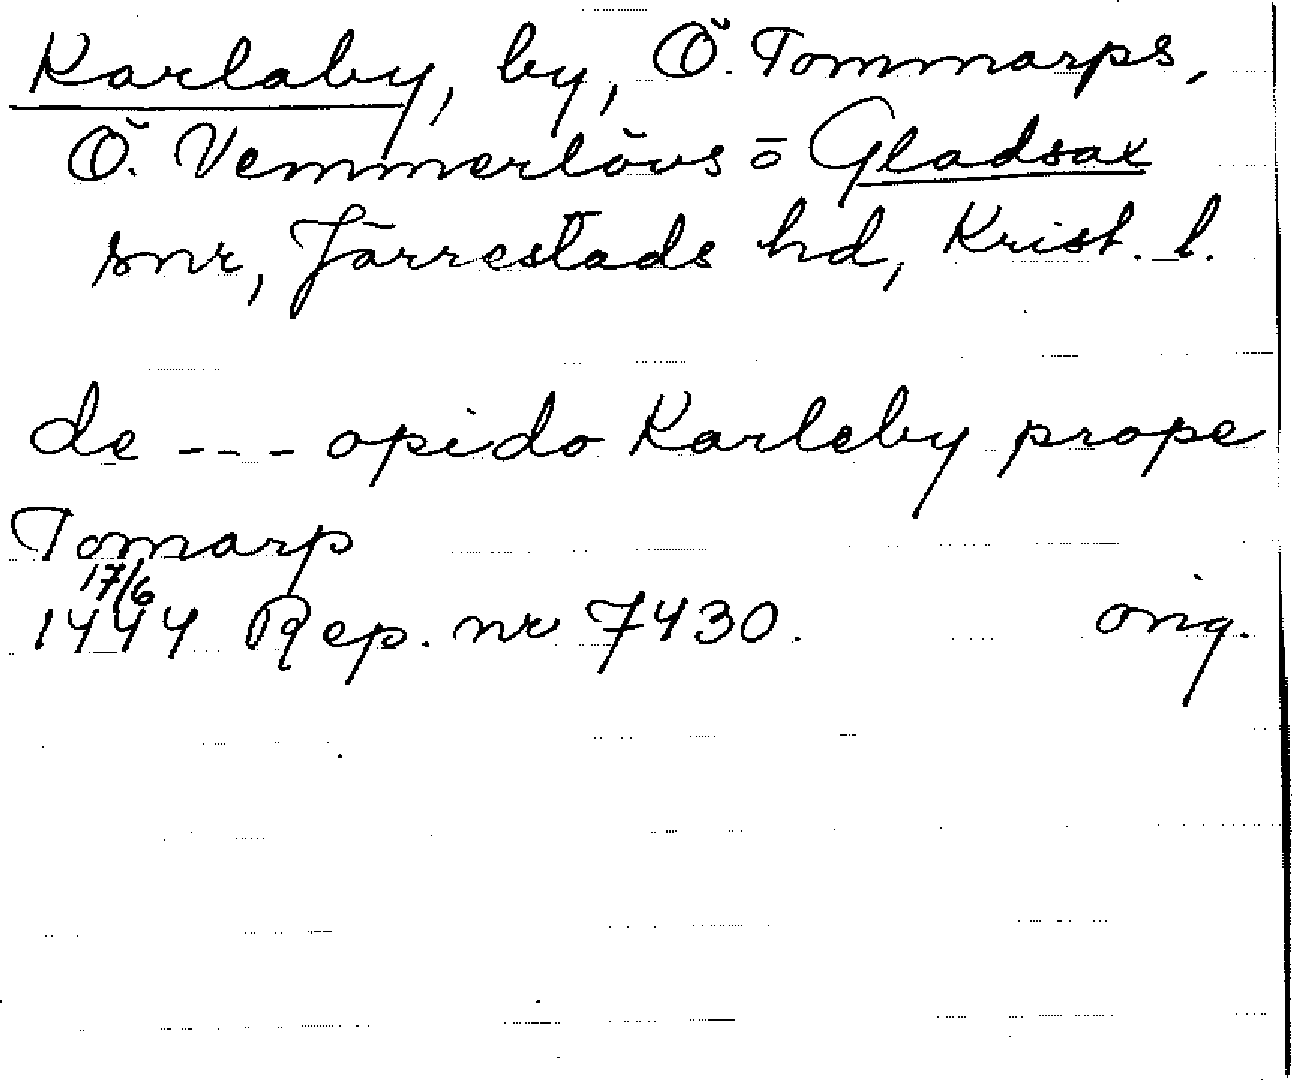 Karlaby, by, Ö. Tommarps,
Ö. Vemmerlövs o Gladsax
snr, Järrestads hd, Krist. l.
de --- opido Karleby prope
Tomarp
17/6
1444 Rep. nr 7430. orig.